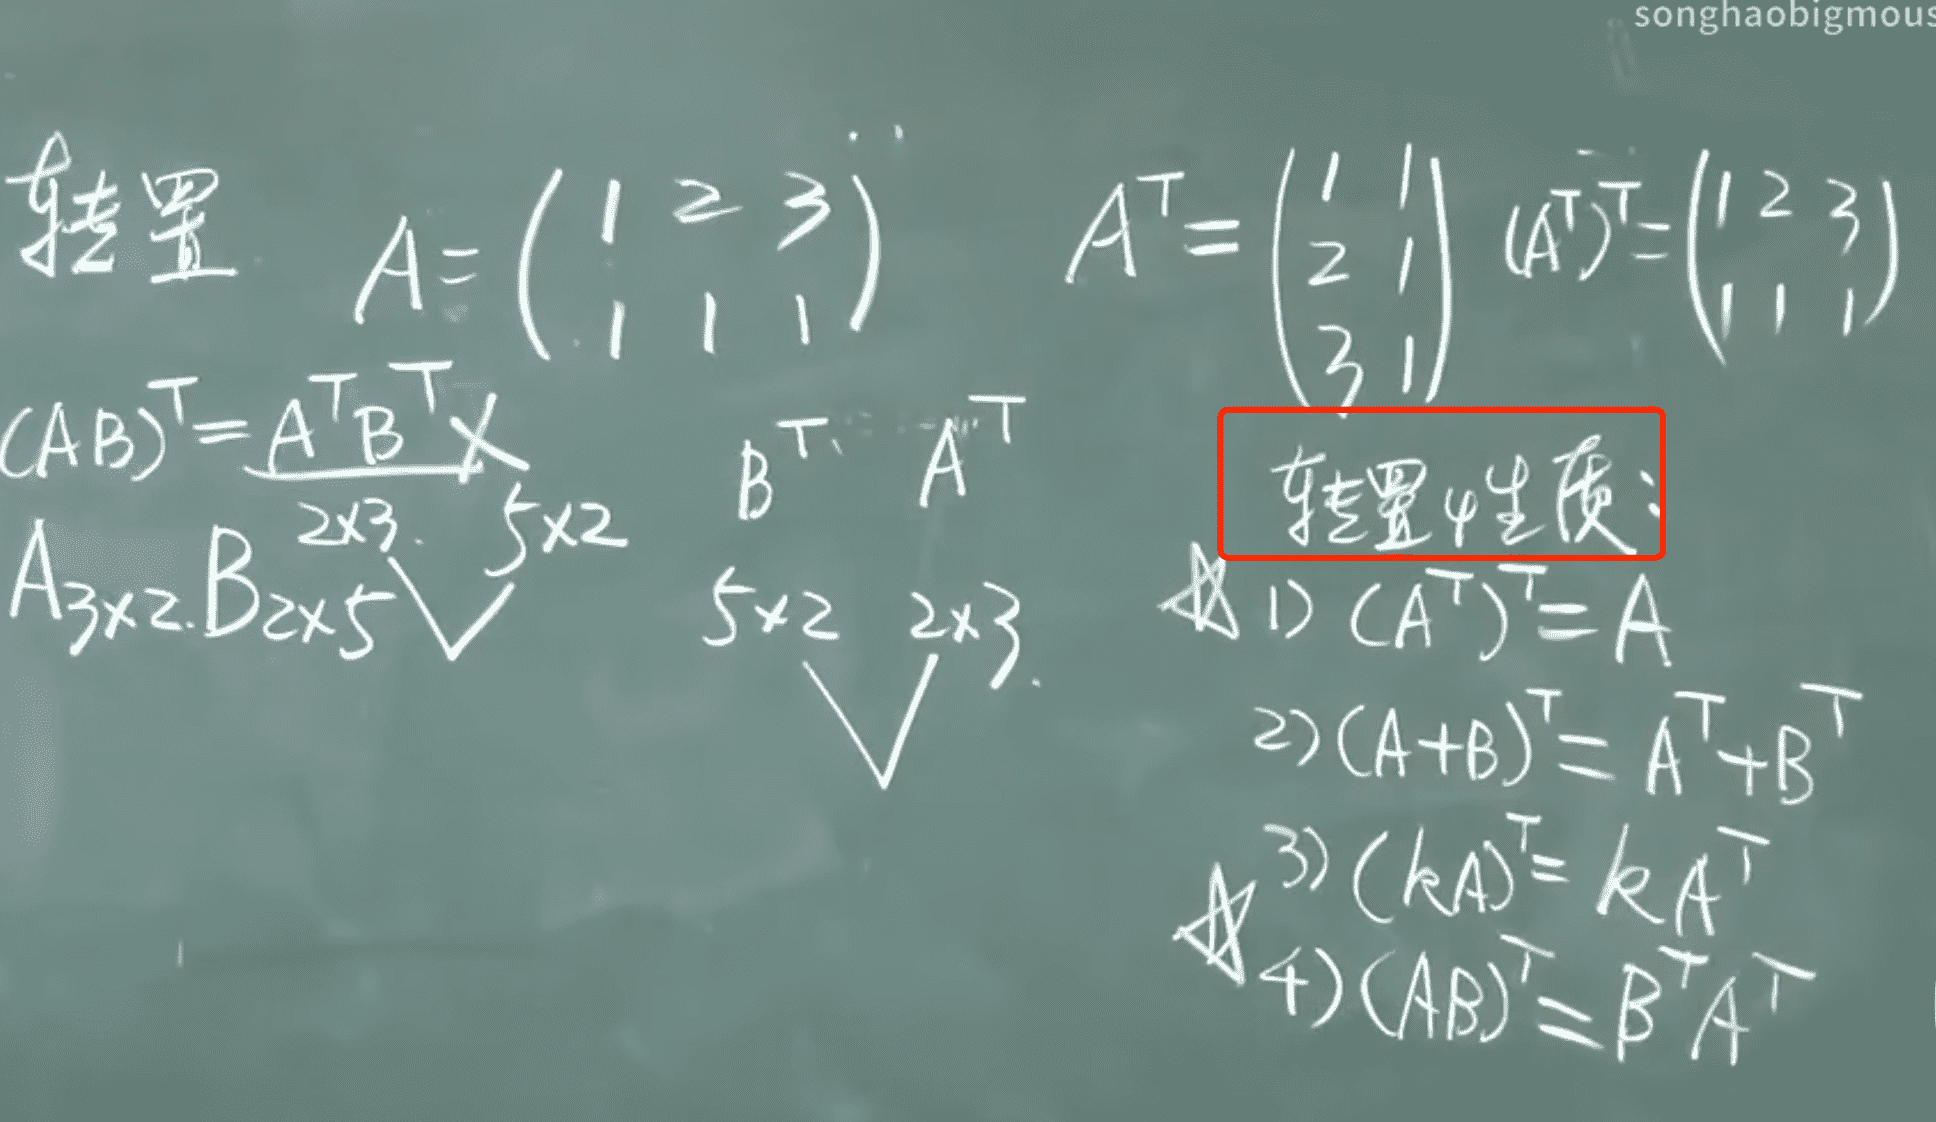 songhaobigmous
转置 A = ( 1 2 3
1 1 1 )
A^T = ( 1 1
2 1
3 1 )
(A^T)^T = ( 1 2 3
1 1 1 )
(AB)^T = A^T B^T ×
2×3. 5×2
A3×2. B2×5
B^T A^T
5×2 2×3.
转置性质:
☆ 1) (A^T)^T = A
2) (A+B)^T = A^T + B^T
3) (kA)^T = kA^T
☆ 4) (AB)^T = B^T A^T